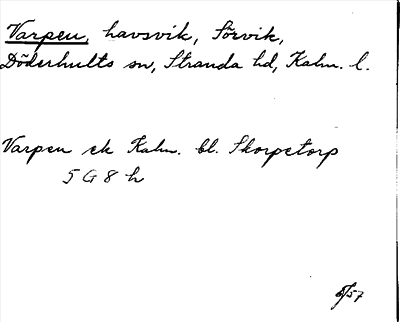 Varpen, havsvik, Sörvik,
Döderhults sn, Stranda hd, Kalm. l.
Varpen ek Kalm. bl. Skorpetorp
5 G 8 h
/57